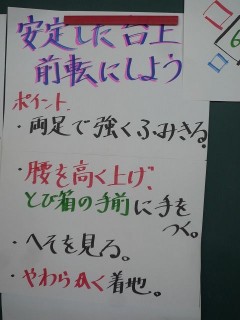 安定した台上
前転にしよう
ポイント
・両足で強くふみきる。
・腰を高く上げ、
とび箱の手前に手を
つく。
・へそを見る。
・やわらかく着地。